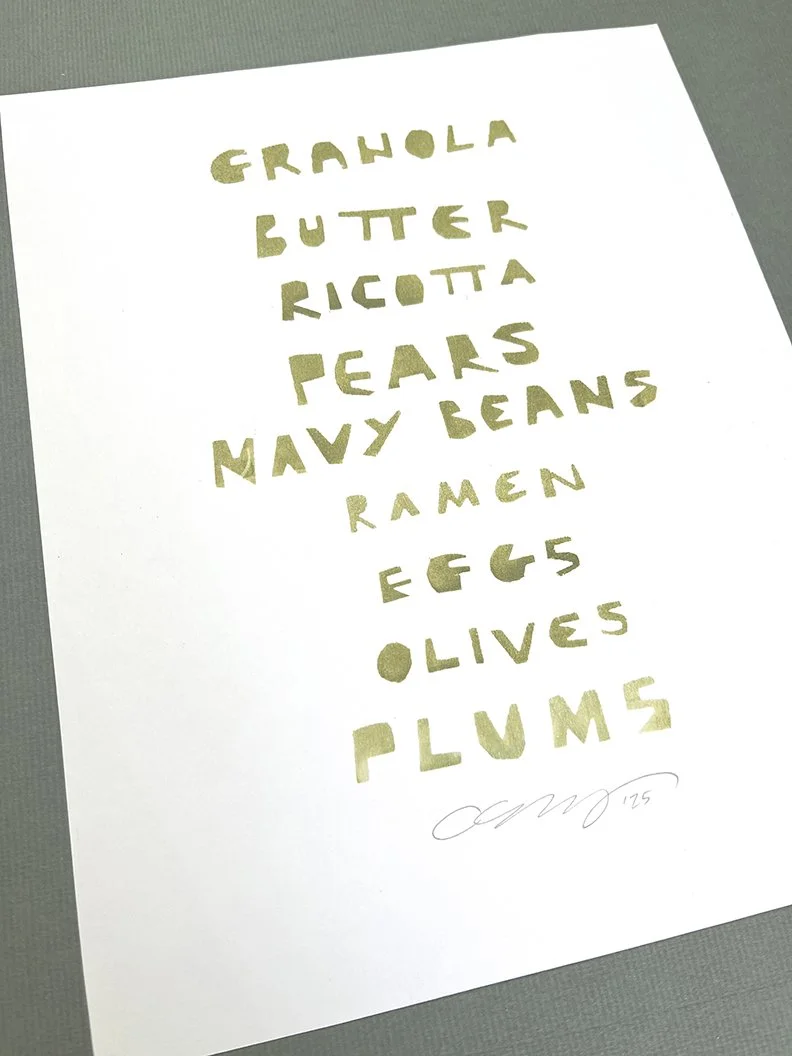 GRANOLA
BUTTER
RICOTTA
PEARS
NAVY BEANS
RAMEN
EGGS
OLIVES
PLUMS
'25